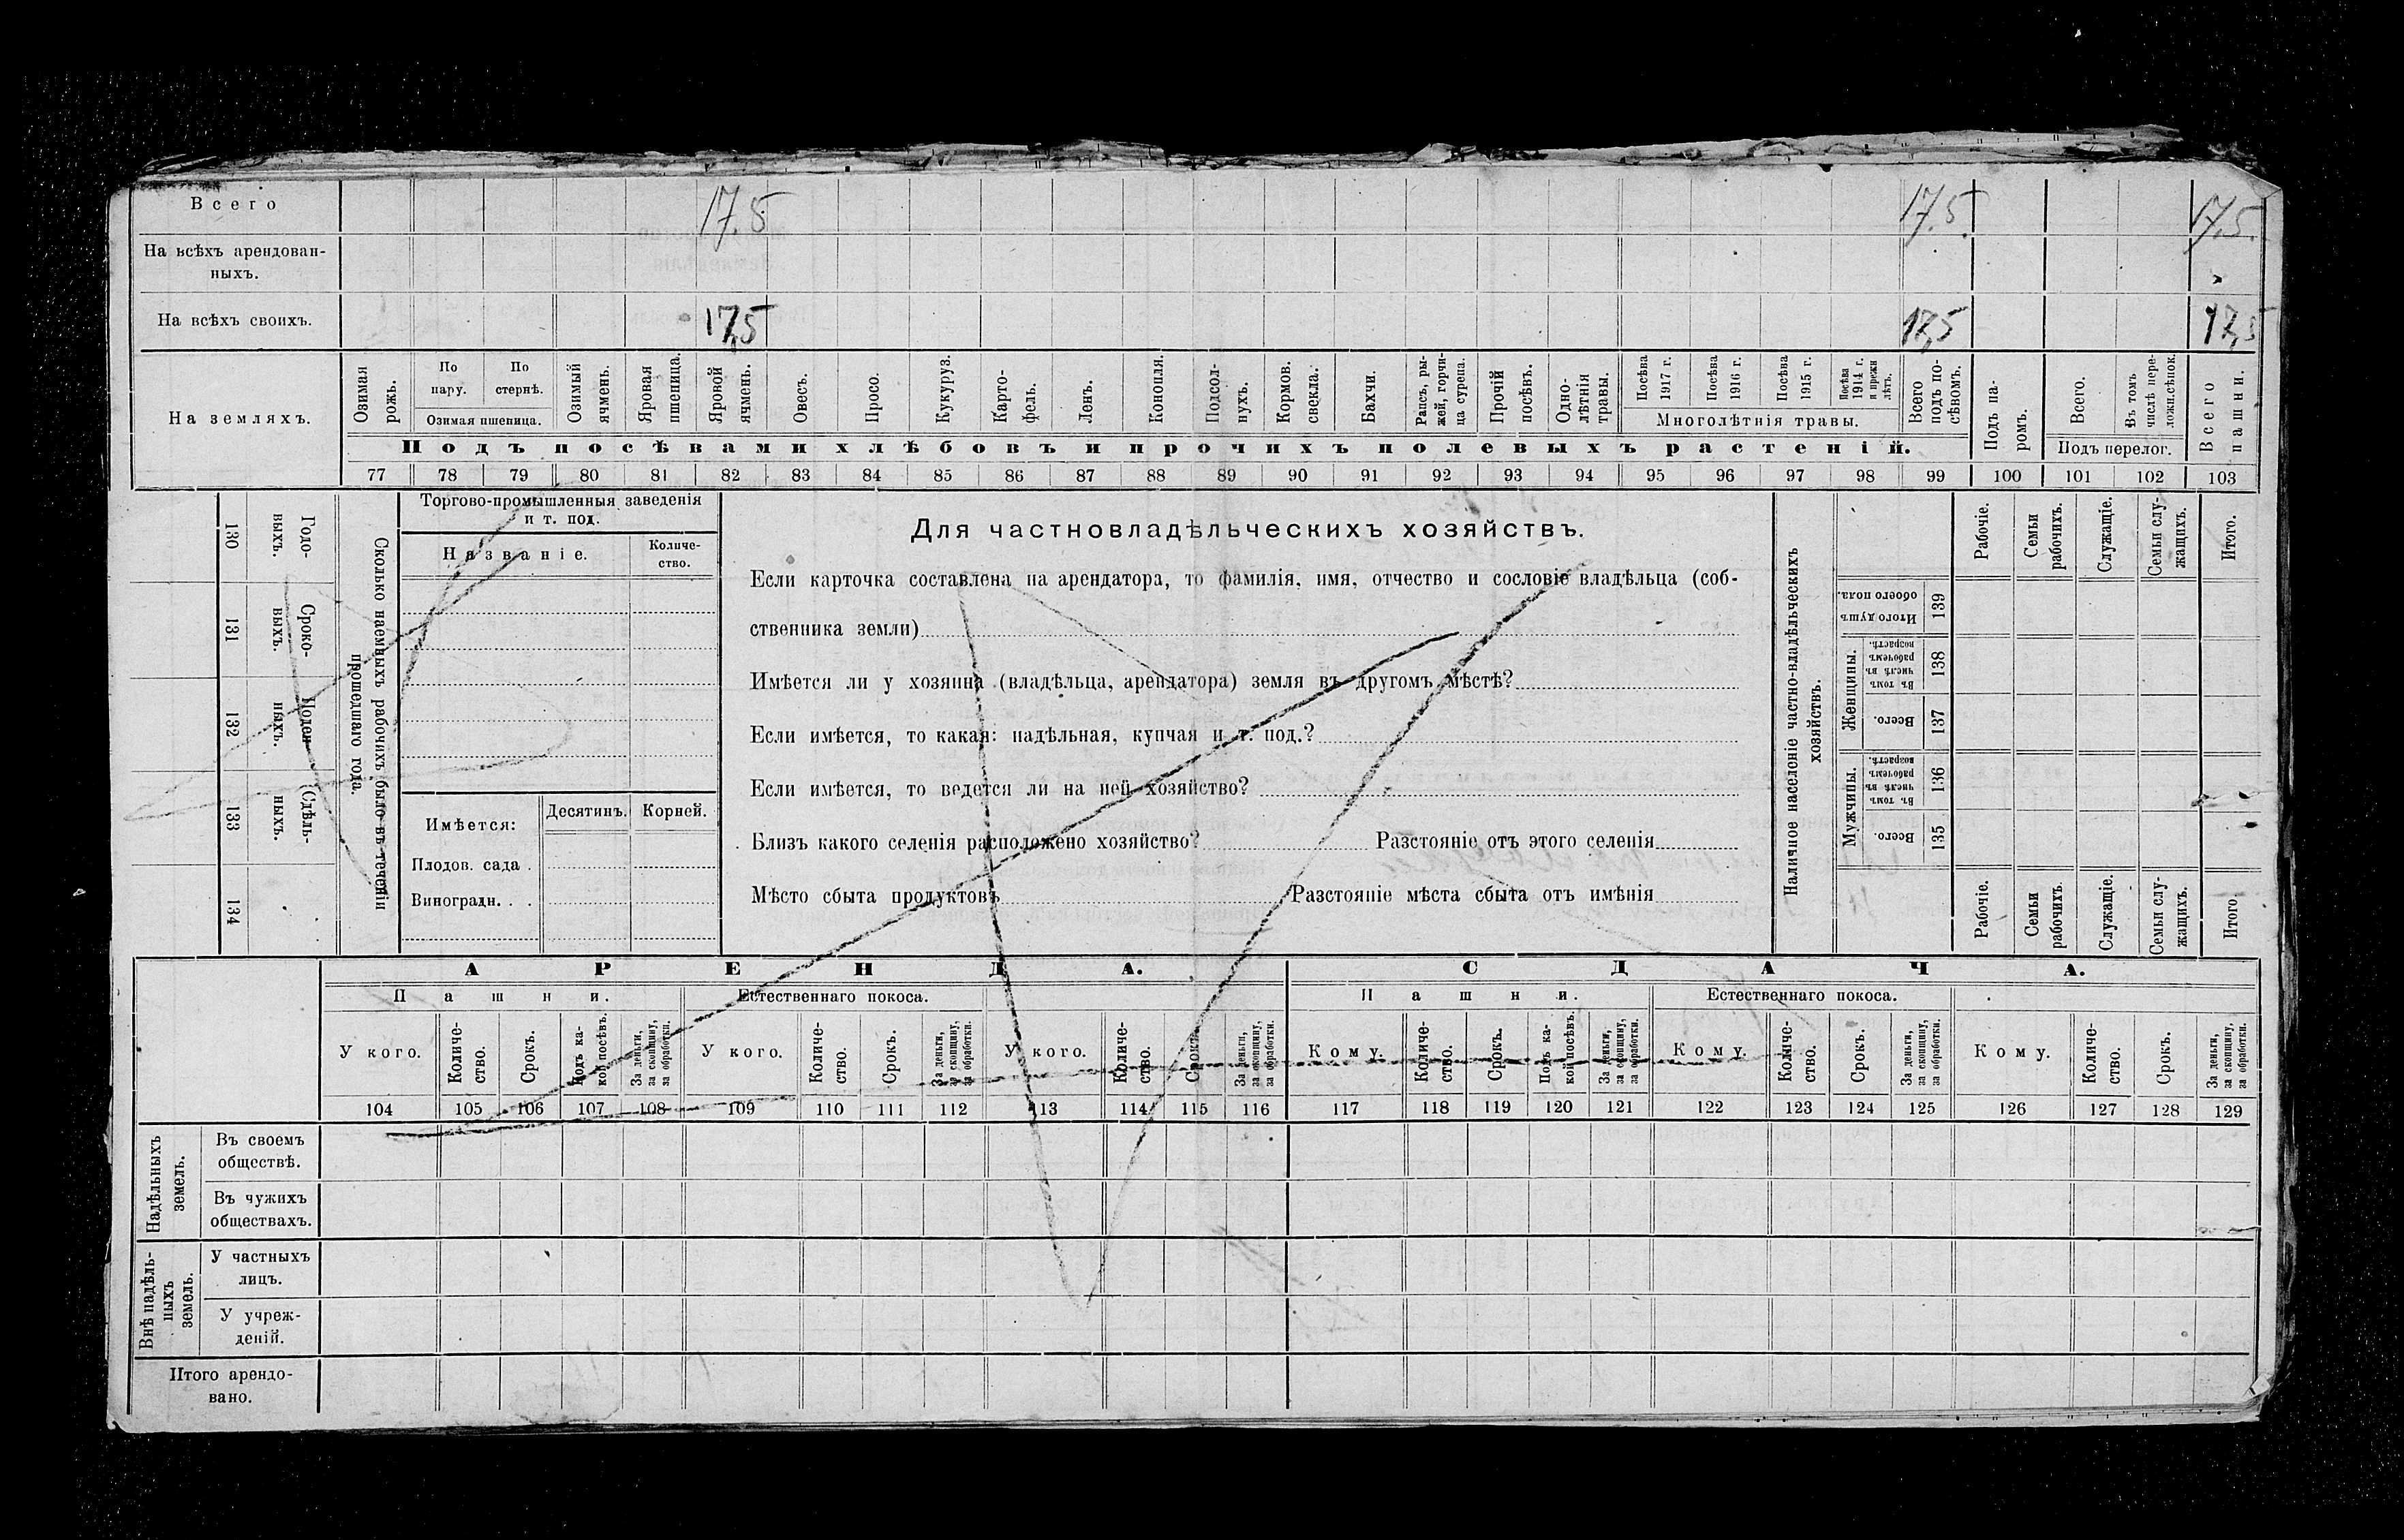 Всего 17.5 17.5 17.5.
На всѣхъ арендован-
ныхъ.
На всѣхъ своихъ. 17,5 17,5 17,5
На земляхъ.
Озимая рожь.
По пару.
По стернѣ.
Озимая пшеница.
Озимый ячмень.
Яровая пшеница.
Яровой ячмень.
Овесъ.
Просо.
Кукуруз.
Карто-
фель.
Ленъ.
Конопля.
Подсол-
нухъ.
Кормов. свекла.
Бахчи.
Рапсъ, ры-
жей, горчи-
ца сурепа.
Прочій посѣвъ.
Одно-
лѣтнія травы.
Посѣва 1917 г.
Посѣва 1916 г.
Посѣва 1915 г.
Посѣва 1914 г. и прежн лѣтъ.
Многолѣтнія травы.
Всего подъ по-
сѣвомъ.
Подъ па-
ромъ.
Всего.
Въ томъ числѣ пере-
ложн.сѣнок.
Подъ перелог.
Всего пашни.
Подъ посѣвами хлѣбовъ и прочихъ полевыхъ растеній.
77 78 79 80 81 82 83 84 85 86 87 88 89 90 91 92 93 94 95 96 97 98 99 100 101 102 103
130 Годо-
выхъ.
131 Сроко-
выхъ.
132 Поден-
ныхъ.
133 (Сдѣль-
ныхъ.
134
Сколько наемныхъ рабочихъ было въ теченіи
прошедшаго года.
Торгово-промышленныя заведенія
и т. под.
Названіе.
Количе-
ство.
Имѣется: Десятинъ. Корней.
Плодов. сада .
Виноградн. . .
Для частновладѣльческихъ хозяйствъ.
Если карточка составлена на арендатора, то фамилія, имя, отчество и сословіе владѣльца (соб-
ственника земли)
Имѣется ли у хозяина (владѣльца, арендатора) земля въ другомъ мѣстѣ?
Если имѣется, то какая: надѣльная, купчая и т. под.?
Если имѣется, то ведется ли на ней хозяйство?
Близъ какого селенія расположено хозяйство? Разстояніе отъ этого селенія
Мѣсто сбыта продуктовъ Разстояніе мѣста сбыта отъ имѣнія
Наличное населеніе частно-владѣльческихъ
хозяйствъ.
Рабочіе.
Семьи рабочихъ.
Служащіе.
Семьи слу-
жащихъ.
Итого.
Итого душ обоего пола. 139
Женщины.
Въ томъ числѣ въ рабочемъ возрастѣ. 138
Всего. 137
Мужчины.
Въ томъ числѣ въ рабочемъ возрастѣ. 136
Всего. 135
Рабочіе.
Семьи рабочихъ.
Служащіе.
Семьи слу-
жащихъ.
Итого.
АРЕНДА. СДАЧА.
Пашни. Естественнаго покоса. Пашни. Естественнаго покоса.
У кого.
Количе-
ство.
Срокъ.
Подъ ка-
кой посѣвъ.
За деньги,
за скопщину,
за обработки.
У кого.
Количе-
ство.
Срокъ.
За деньги,
за скопщину,
за обработки.
У кого.
Количе-
ство.
Срокъ.
За деньги,
за скопщину,
за обработки.
Кому.
Количе-
ство.
Срокъ.
Подъ ка-
кой посѣвъ.
За деньги,
за скопщину,
за обработки.
Кому.
Количе-
ство.
Срокъ.
За деньги,
за скопщину,
за обработки.
Кому.
Количе-
ство.
Срокъ.
За деньги,
за скопщину,
за обработки.
104 105 106 107 108 109 110 111 112 113 114 115 116 117 118 119 120 121 122 123 124 125 126 127 128 129
Надѣльныхъ
земель.
Въ своемъ
обществѣ.
Въ чужихъ
обществахъ.
Внѣ надѣль-
ныхъ
земель.
У частныхъ
лицъ.
У учреж-
деній.
Итого арендо-
вано.